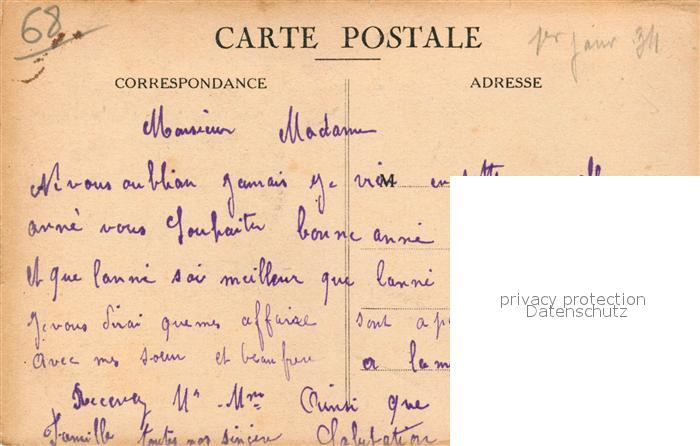 68
CARTE POSTALE
1er janv 34
CORRESPONDANCE
ADRESSE
Monsieur Madame
Ne vous oublian jamais je vien
M
anné vous Souhaiter bonne anné
et que lanné soi meilleur que lanné
Je vous dirai que mes affaire sont a
avec mes soeur et beau frere a la
Recevez Mr Mme Ainsi que
Famille toutes nos sincère Salutation
privacy protection
Datenschutz